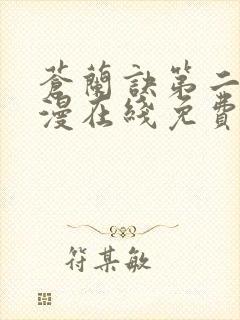 蒼蘭訣第二
漫在綫免費
符某敏